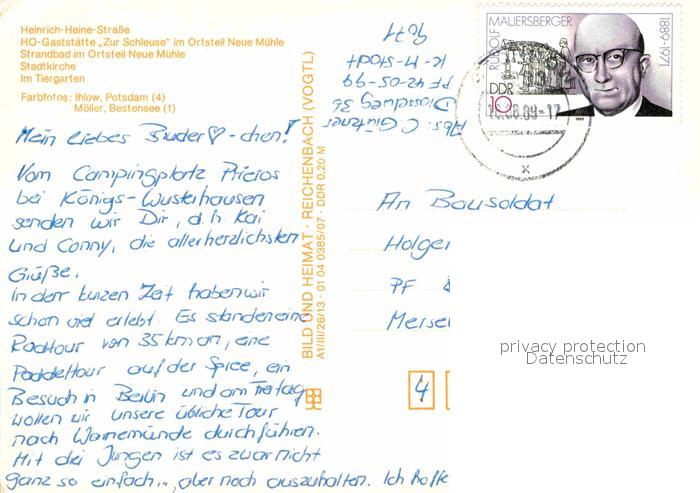 Heinrich-Heine-Straße
HO-Gaststätte „Zur Schleuse" im Ortsteil Neue Mühle
Strandbad im Ortsteil Neue Mühle
Stadtkirche
Im Tiergarten
Farbfotos: Ihlow, Potsdam (4)
Möller, Bestensee (1)
Mein liebes Bruder♡-chen!
Vom Campingplatz Prieros
bei Königs-Wusterhausen
senden wir Dir, d.h. Kai
und Conny, die allerherzlichsten
Grüße.
In der kurzen Zeit haben wir
schon viel erlebt. Es standen eine
Radtour von 35 km an, eine
Paddeltour auf der Spree, ein
Besuch in Berlin und am Freitag
wollen wir unsere übliche Tour
nach Warnemünde durchführen.
Mit drei Jungen ist es zwar nicht
ganz so einfach... aber noch auszuhalten. Ich hoffe
BILD UND HEIMAT · REICHENBACH (VOGTL)
A1/III/26/13 · 01 04 0385/07 · DDR 0,20 M
Abs: C.
36
PF 42-05-99
K-M-Stadt
9071
RUDOLF MAUERSBERGER
1889-1971
DDR
10
.08.89-17
x
An Bausoldat
Holger
PF
Merse
4
privacy protection
Datenschutz